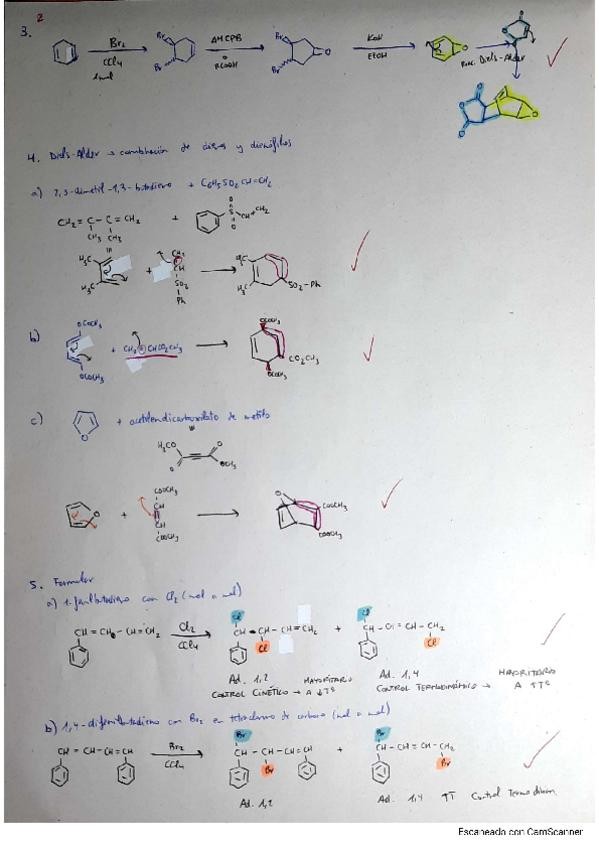 2
3.
Br₂
CCl₄
1mol
Br
Br
AMCPB
o
RCOOH
Br
Br
O
KOH
EtOH
O
Reac. Diels-Alder
4. Diels-Alder → combinación de dienos y dienófilos
a) 2,3-dimetil-1,3-butadieno + C₆H₅SO₂CH=CH₂
CH₂=C-C=CH₂ + CH=CH₂
CH₃ CH₃
H₃C
H₃C
+
CH₂
CH
SO₂
Ph
H₃C
H₃C
SO₂-Ph
b)
OCOCH₃
OCOCH₃
+
OCOCH₃
CO₂CH₃
OCOCH₃
c)
O
+ acetilendicarboxilato de metilo
H₃CO
O
O
OCH₃
COOCH₃
COOCH₃
O
+
O
COOCH₃
COOCH₃
5. Formular
a) 1-fenilbutadieno con Cl₂ (mol a mol)
CH=CH-CH=CH₂
Cl₂
CCl₄
Cl
CH-CH-CH=CH₂
Cl
+
Cl
Cl
Ad. 1,2
MAYORITARIO
CONTROL CINÉTICO → A ↓Tº
Ad. 1,4
CONTROL TERMODINÁMICO →
MAYORITARIO
A ↑Tº
b) 1,4-difenilbutadieno con Br₂ en tetracloruro de carbono (mol a mol)
CH=CH-CH=CH
Br₂
CCl₄
Br
CH-CH-CH=CH
Br
+
Br
CH-CH=CH-CH₂
Br
Ad. 1,2
Ad. 1,4 ↑T Control Termodinám.
Escaneado con CamScanner